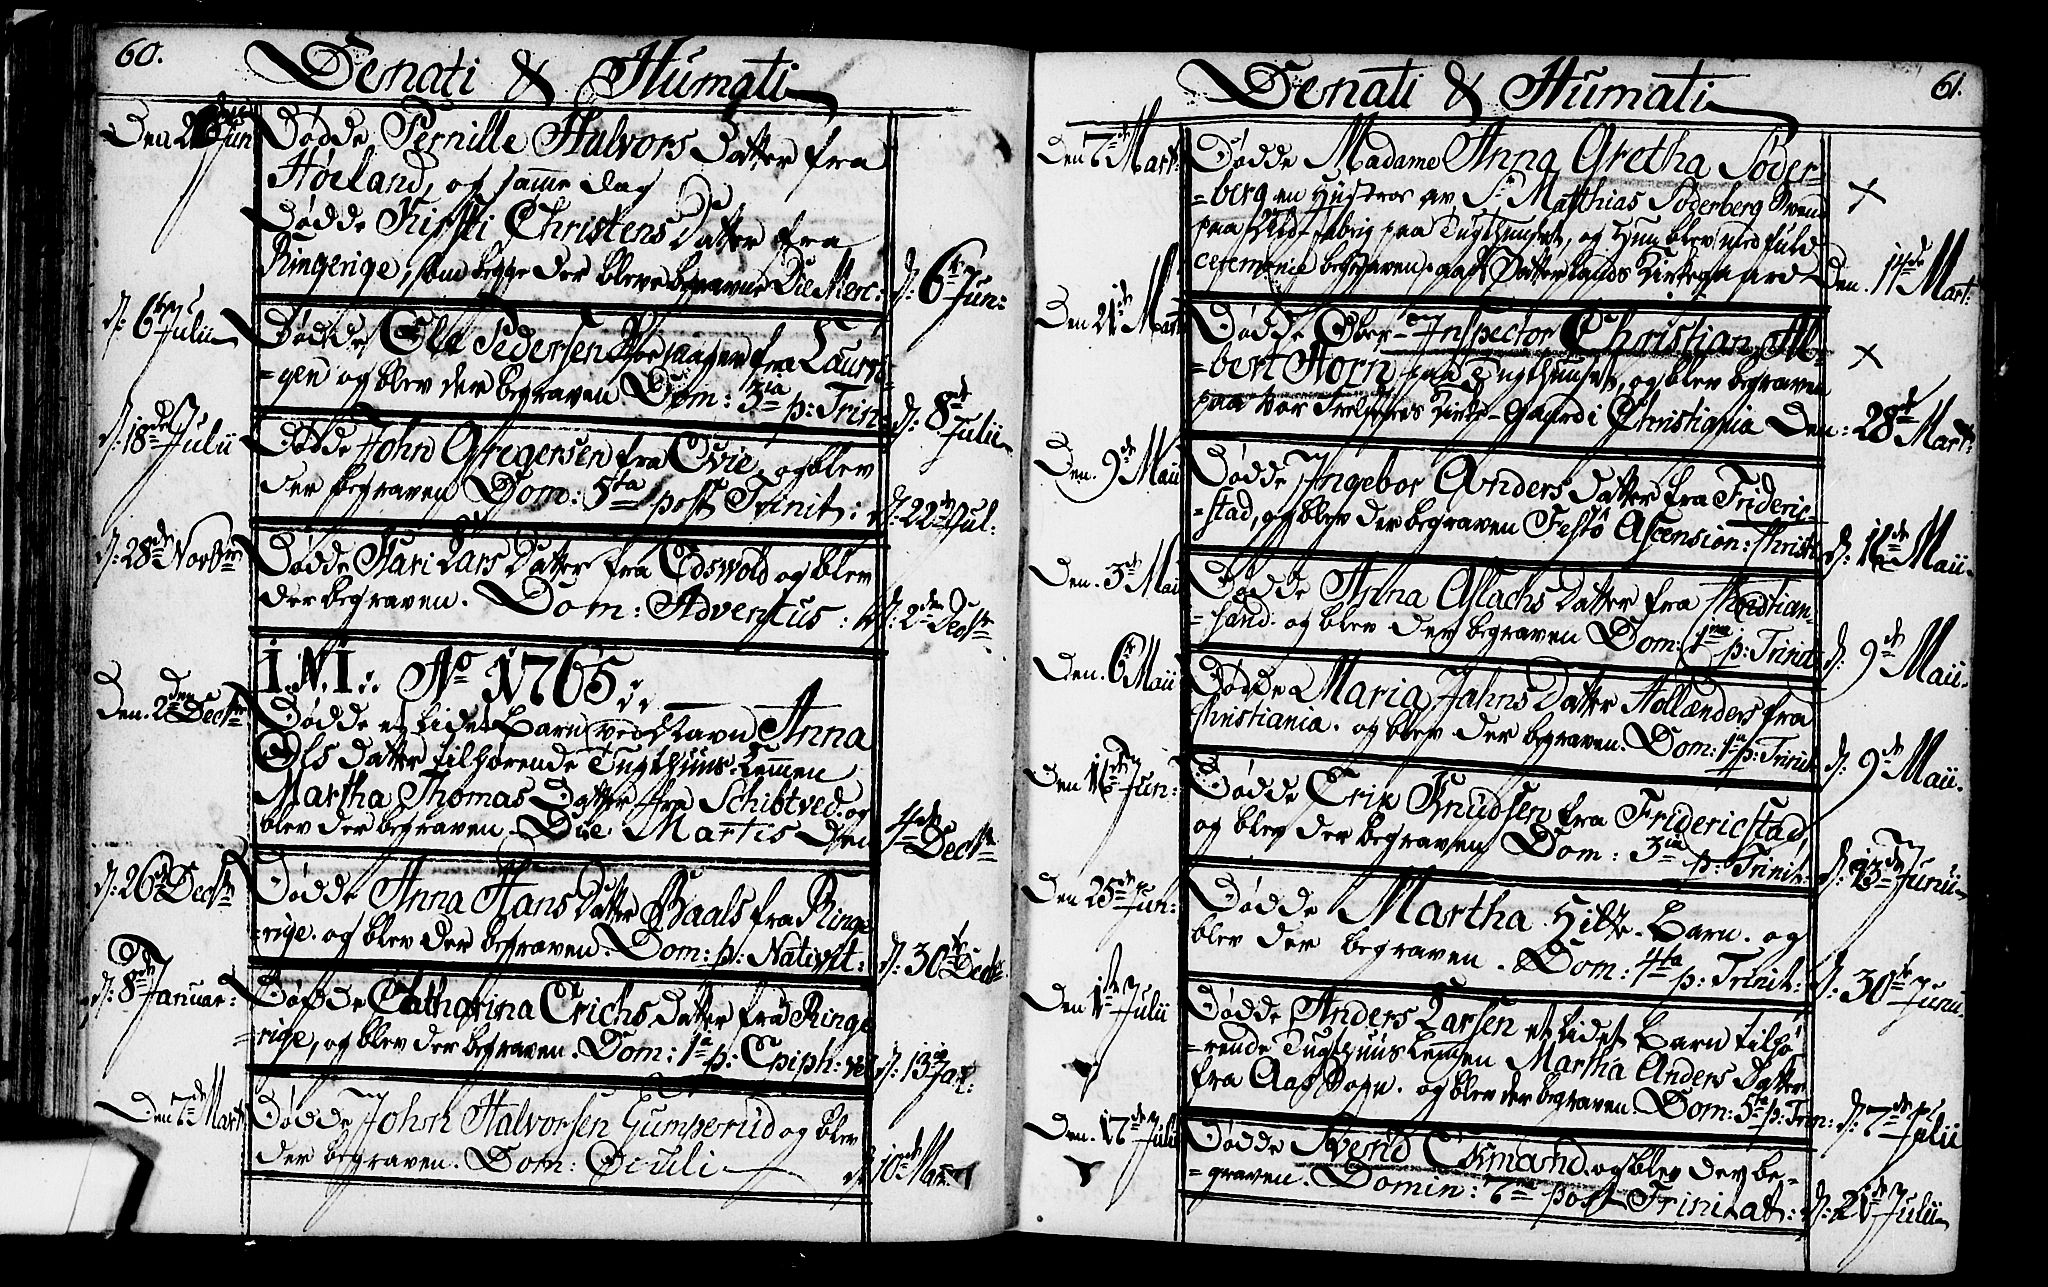 60.
Denati & Humati
Den 2 Jun
Dødde Pernille Halvors Datter fra
Høiland, og samme dag
Dødde Kirsti Christens Datter fra
Ringerige, som begge der bleve begravne Die Merc: d: 6te Jun:
d: 6te Julii
Dødde Ole Pedersen fra Laurvi-
-gen og blev der begraven Dom: 3tia p: Trin: d: 8de Julii
d: 18de Julii
Dødde John Gregersen fra Evie, og blev
der begraven Dom: 5ta post Trinit: d: 22de Jul:
d: 28de Novbr
Dødde Kari Lars Datter fra Edswold og blev
der begraven. Dom: Adventus: d: 2den Decbr
I.N.I:. Ao 1765
Den. 2den Decbr
Dødde et lidet Barn ved Navn Anna
Ols Datter tilhørende Tugthuus-Lemmen
Martha Thomas Datter fra Schibtved. og
blev der begraven. Die Martis Den 4de Decbr
d: 26de Decbr
Dødde Anna Hans Datter Baals fra Ringe-
-rige. og blev der begraven. Dom: p: Nativit: d: 30te Decbr
d: 8de Januar:
Dødde Cathgrina Erichs Datter fra Ringe
-rige, og blev der begraven. Dom: 1a p: Epiph: d: 13de Jan:
Den 7de Mart
Dødde John Halvorsen Gumperud og blev
der begraven. Dom: Oculi d: 10de Mar:
61.
Denati & Humati
Den 7de Mart:
Dødde Madame Anna Gretha Søder-
-berg en Hustroe av Sr Matthias Søderberg Svend
paa Uld-fabriq paa Tugthuuset, og Hun blev med fuld
ceremonie begraven paa Vatterlands Kirkegaard Den. 14de Mart:
Den 21de Mart
Dødde Ober-Inspector Christian Al-
-bert Horn paa Tugthuuset, og blev begraven
paa Vor Frelseres Kirke-Gaard i Christiania Den: 28de Mart:
Den. 9de Maii
Dødde Ingebor Anders Datter fra Frideric-
-stad, og blev der begraven Festo Ascension: Christi d: 16de Maii.
Den. 3de Maii
Dødde Anna Aslachs Datter fra Christian-
-sand. og blev der begraven Dom: 1ma p: Trinit: d: 9de Maii.
Den. 6te Maii
Dødde Maria Jahns Datter Hollænders fra
Christiania. og blev der begraven. Dom: 1a p: Trinit: d: 9de Maii.
Den 16de Jun:
Dødde Erix Knudsen fra Fridericstad,
og blev der begraven Dom: 3tia p: Trinit: d: 23de Junii
Den 25de Jun:
Dødde Martha Hitte-Barn. og
blev der begraven. Dom: 4ta p: Trinit: d: 30te Junii.
Den 1ste Julii
Dødde Anders Larsen et lidet Barn tilhø-
-rende Tugthuus Lemmen Martha Anders Datter
fra Aas Sogn. og blev der begraven Dom: 5ta p: Trin: d: 7de Julii
Den. 17de Julii
Dødde Sverid Esmand. og blev der be-
-graven. Domin: 7ma post Trinitat: d: 21de Julii